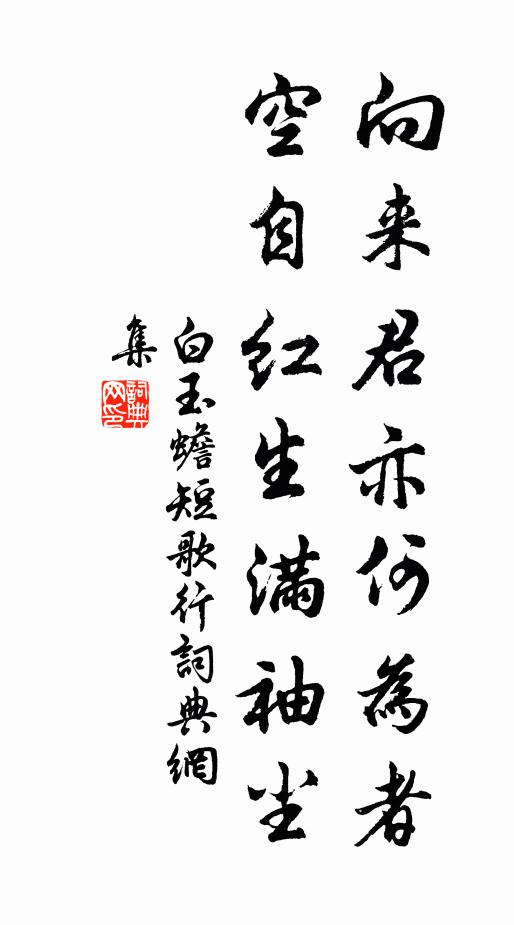 向来君亦何為者
空自红生满袖尘
白玉蟾短歌行詞典網
集
詞典
网印